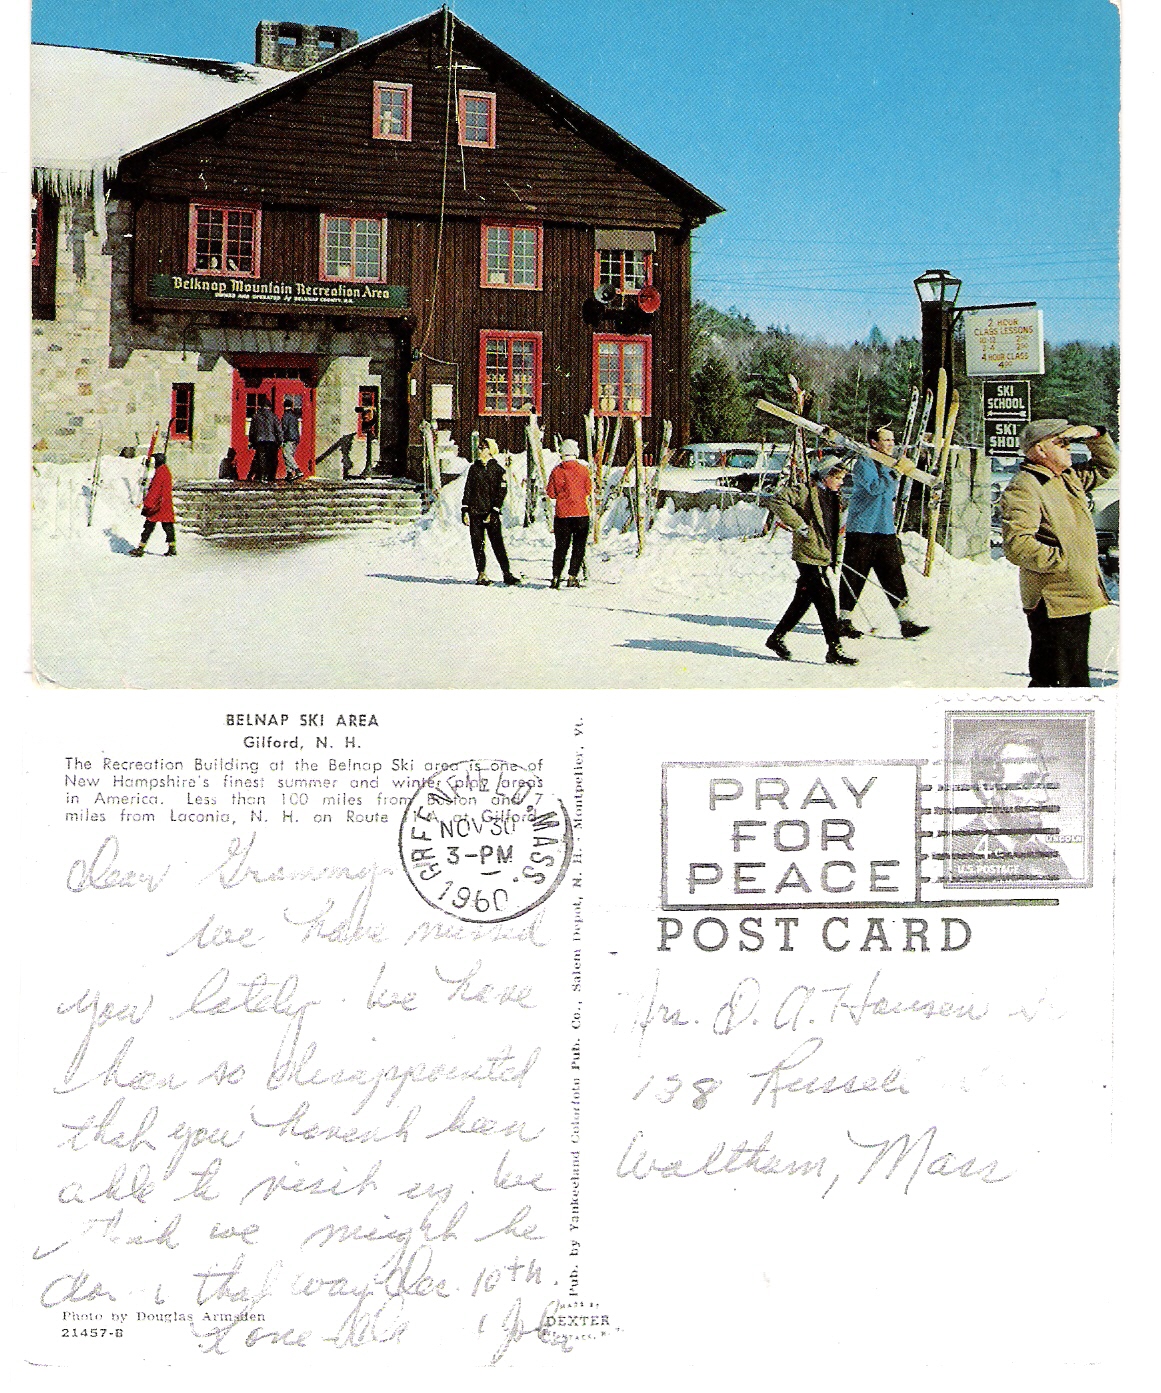 Belknap Mountain Recreation Area
OWNED AND OPERATED by BELKNAP COUNTY, N.H.
2 HOUR
CLASS LESSONS
10-12
2-4
4 HOUR CLASS
SKI
SCHOOL
SKI
SHOP
BELNAP SKI AREA
Gilford, N. H.
The Recreation Building at the Belnap Ski area is one of
New Hampshire's finest summer and winter play areas
in America. Less than 100 miles from Boston and 7
miles from Laconia, N. H. on Route 11A at Gilford.
GREENFIELD, MASS.
NOV 30
3-PM
1960
PRAY
FOR
PEACE
LINCOLN
4c
U.S. POSTAGE
POST CARD
Dear Grammy.
We have missed
you lately. We have
been so disappointed
that you haven't been
able to visit us. We
think we might be
down that way Dec. 10th.
Love John
Mrs. D. A. Hansen
138 Russell
Waltham, Mass
Pub. by Yankeeland Colorfoto Pub. Co., Salem Depot, N. H. - Montpelier, Vt.
Photo by Douglas Armsden
21457-B
MADE BY
DEXTER